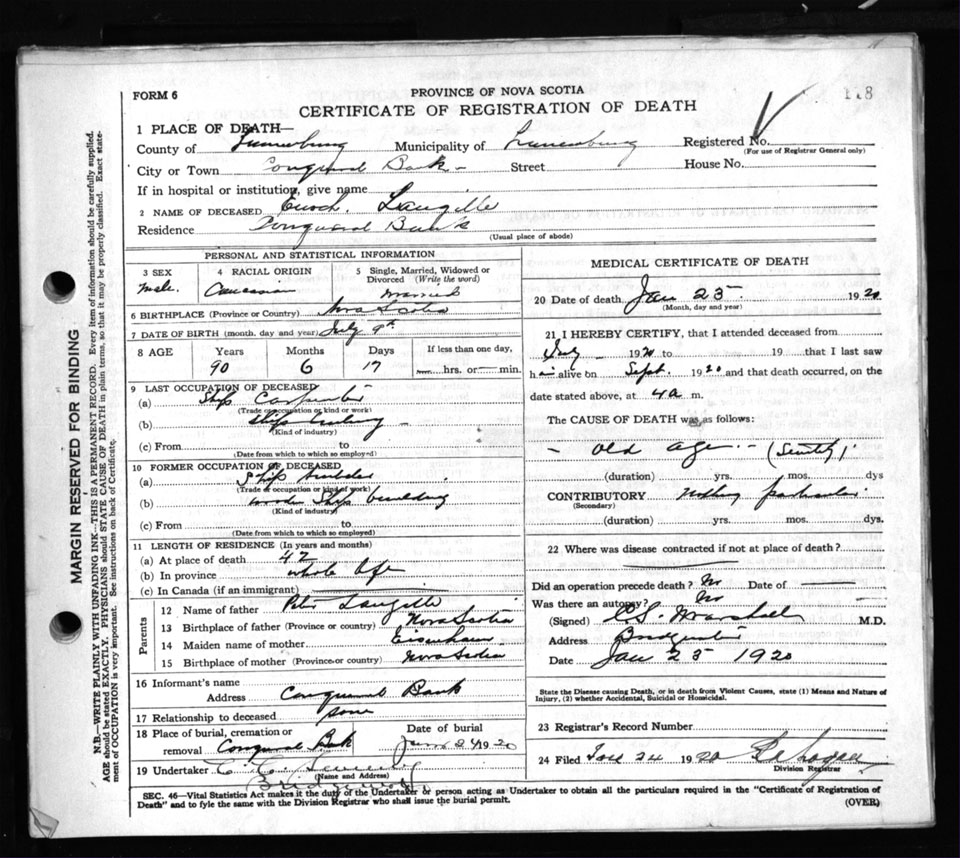 118
PROVINCE OF NOVA SCOTIA
FORM 6
CERTIFICATE OF REGISTRATION OF DEATH
1 PLACE OF DEATH—
County of Lunenburg Municipality of Lunenburg Registered No.
(For use of Registrar General only)
City or Town Conquerall Bank – Street House No.
If in hospital or institution, give name
2 NAME OF DECEASED Enoch Langille
Residence Conquerall Bank
(Usual place of abode)
PERSONAL AND STATISTICAL INFORMATION
3 SEX 4 RACIAL ORIGIN 5 Single, Married, Widowed or
Divorced (Write the word)
Male. Caucasian Married
6 BIRTHPLACE (Province or Country) Nova Scotia
7 DATE OF BIRTH (month, day and year) July 9th
8 AGE Years Months Days If less than one day,
90 6 17 hrs. or min.
9 LAST OCCUPATION OF DECEASED
(a) Ship Carpenter
(Trade or occupation or kind of work)
(b)
(Kind of industry)
(c) From to
(Date from which to which so employed)
10 FORMER OCCUPATION OF DECEASED
(a) Ship builder
(Trade or occupation or kind of work)
(b) wooden Ship building
(Kind of industry)
(c) From to
(Date from which to which so employed)
11 LENGTH OF RESIDENCE (In years and months)
(a) At place of death 42
(b) In province whole life
(c) In Canada (if an immigrant)
Parents
12 Name of father Peter Langille
13 Birthplace of father (Province or country) Nova Scotia
14 Maiden name of mother Eisenhaur
15 Birthplace of mother (Province or country) Nova Scotia
16 Informant's name
Address Conquerall Bank
17 Relationship to deceased sone
18 Place of burial, cremation or Date of burial
removal Conquerall Bk 1920
19 Undertaker
(Name and Address)
Bridgewater
MEDICAL CERTIFICATE OF DEATH
20 Date of death Jan 25 1920
(Month, day and year)
21 I HEREBY CERTIFY, that I attended deceased from
July 1920 to 19 that I last saw
him alive on Sept. 1920 and that death occurred, on the
date stated above, at 4 a m.
The CAUSE OF DEATH was as follows:
– old age – (Senility)
(duration) yrs. mos. dys
CONTRIBUTORY Nothing particular
(Secondary)
(duration) yrs. mos. dys.
22 Where was disease contracted if not at place of death?
Did an operation precede death? No Date of
Was there an autopsy? No
(Signed) Marshall M.D.
Address Bridgewater
Date Jan 25 1920
State the Disease causing Death, or in death from Violent Causes, state (1) Means and Nature of
Injury, (2) whether Accidental, Suicidal or Homicidal.
23 Registrar's Record Number
24 Filed 24 1920
Division Registrar
SEC. 46—Vital Statistics Act makes it the duty of the Undertaker or person acting as Undertaker to obtain all the particulars required in the "Certificate of Registration of
Death" and to fyle the same with the Division Registrar who shall issue the burial permit.
(OVER)
MARGIN RESERVED FOR BINDING
N.B.—WRITE PLAINLY WITH UNFADING INK—THIS IS A PERMANENT RECORD. Every item of information should be carefully supplied.
AGE should be stated EXACTLY. PHYSICIANS should STATE CAUSE OF DEATH in plain terms, so that it may be properly classified. Exact state-
ment of OCCUPATION is very important. See instructions on back of Certificate.